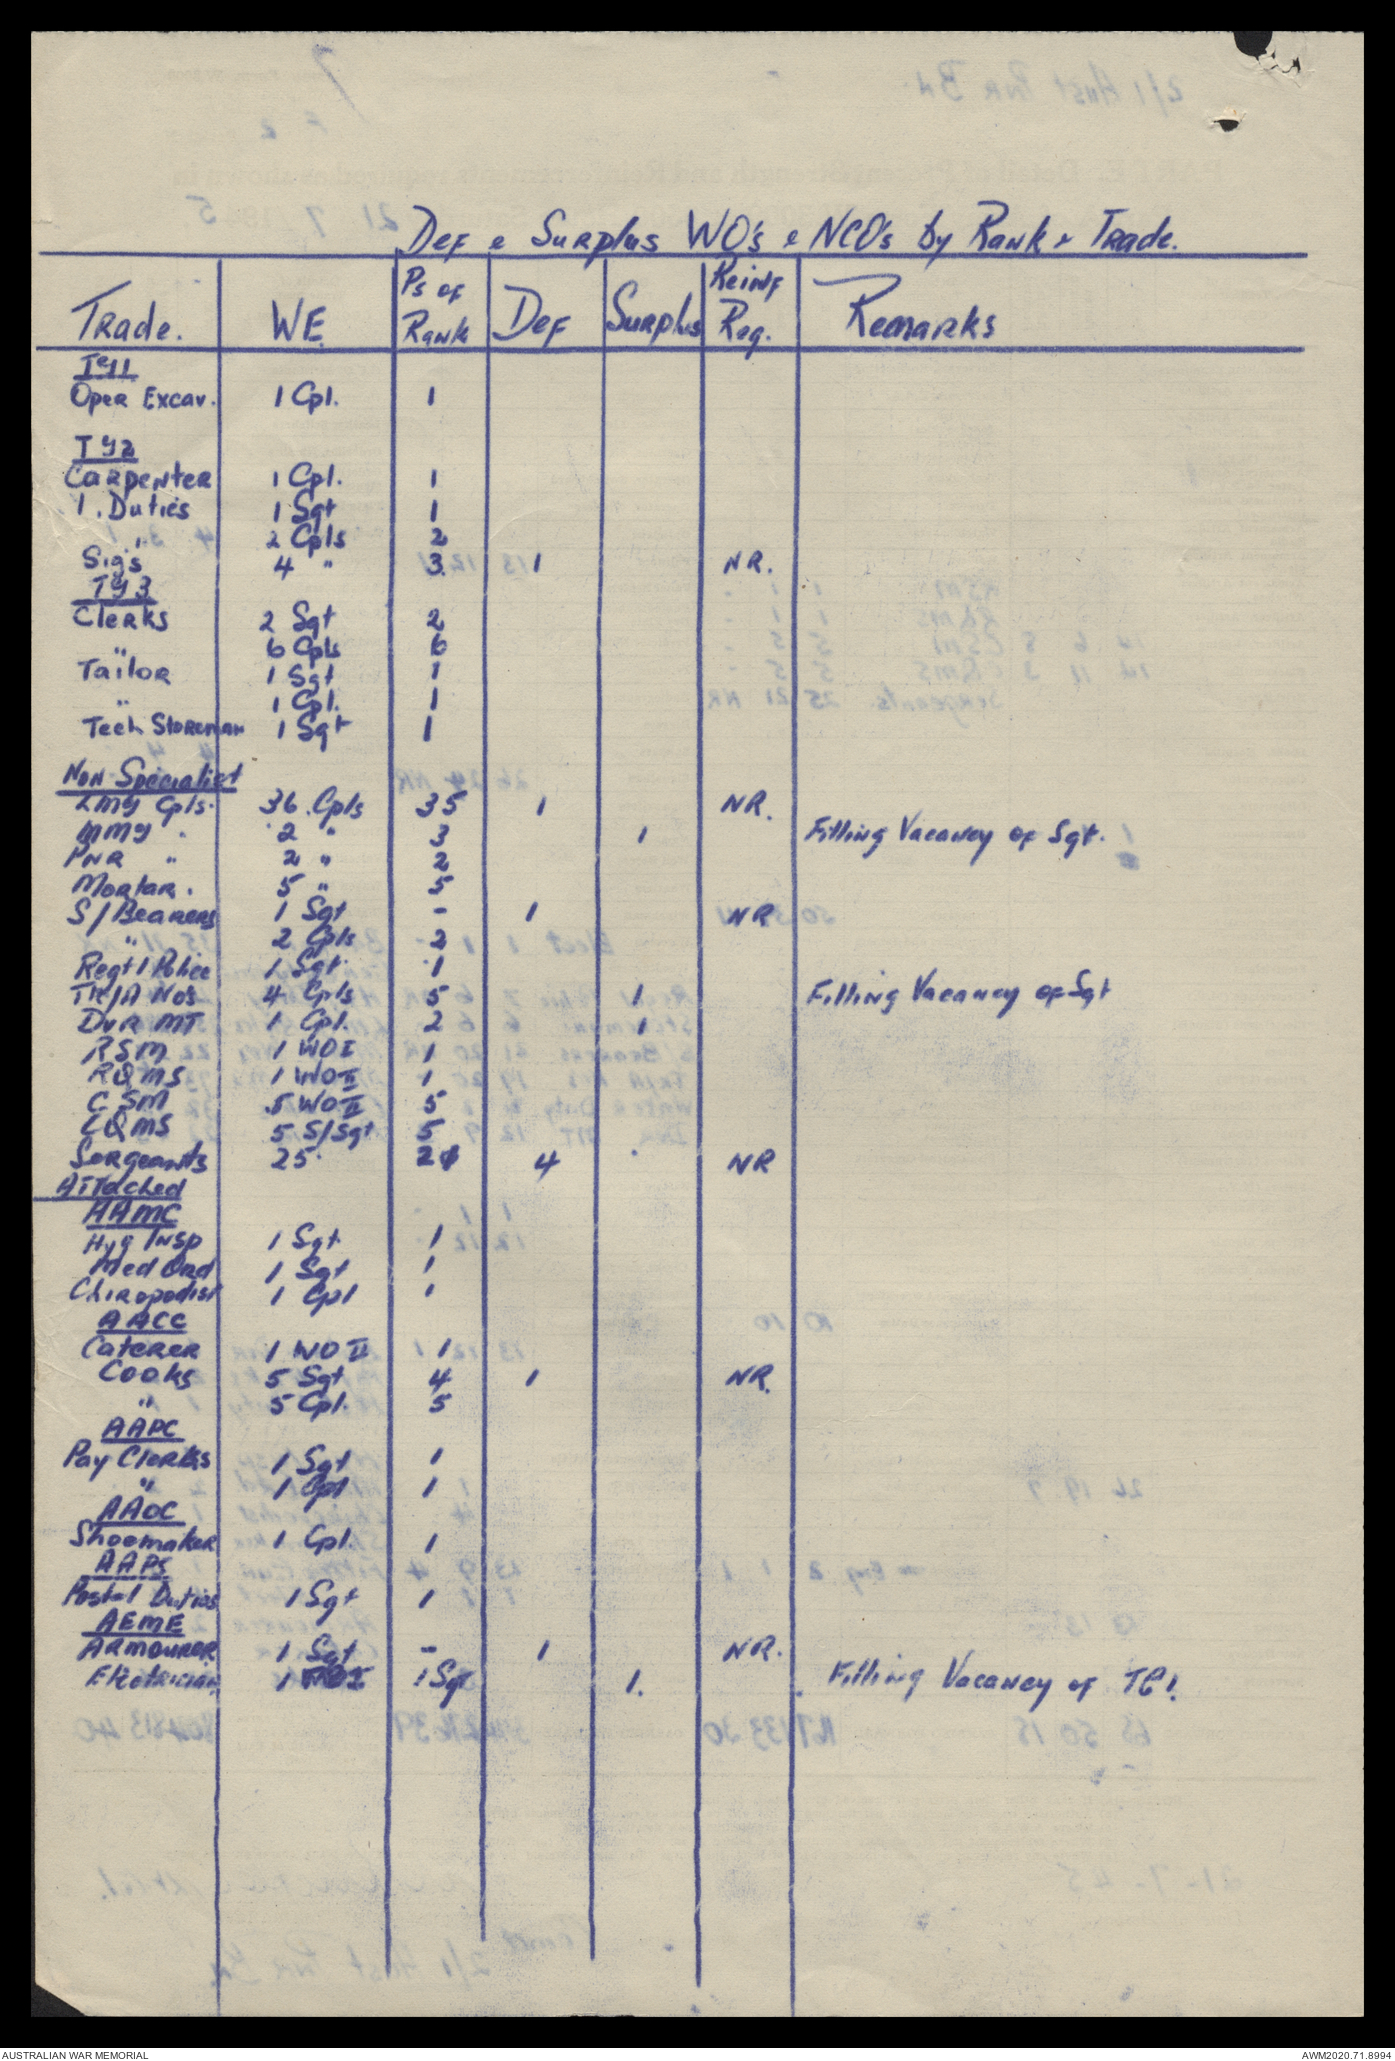 Def & Surplus WO's & NCO's by Rank & Trade.
Trade. WE. Ps of Rank Def Surplus Reinf Req. Remarks
TG1
Oper Excav. 1 Cpl. 1
TG2
Carpenter 1 Cpl. 1
I. Duties 1 Sgt 1
" 2 Cpls 2
Sigs 4 " 3 1 NR.
TG3
Clerks 2 Sgt 2
" 6 Cpls 6
Tailor 1 Sgt 1
" 1 Cpl. 1
Tech Storeman 1 Sgt 1
Non Specialist
LMG Cpls. 36 Cpls 35 1 NR.
MMG . 2 " 3 1 Filling Vacancy of Sgt.
PNR " 2 " 2
Mortar . 5 " 5
S/Bearers 1 Sgt - 1 NR
" 2 Cpls 2
Regtl Police 1 Sgt 1
TK/A Nos 4 Cpls 5 1 Filling Vacancy of Sgt
Dvr MT 1 Cpl. 2 1
RSM 1 WOI 1
RQMS 1 WOII 1
CSM 5 WOII 5
CQMS 5 S/Sgt 5
Sergeants 25 21 4 NR
Attached
AAMC
Hyg Insp 1 Sgt 1
Med Ord 1 Sgt 1
Chiropodist 1 Cpl 1
AACC
Caterer 1 WOII 1
Cooks 5 Sgt 4 1 NR.
" 5 Cpl. 5
AAPC
Pay Clerks 1 Sgt 1
" 1 Cpl 1
AAOC
Shoemaker 1 Cpl. 1
AAPS
Postal Duties 1 Sgt 1
AEME
Armourer 1 Sgt - 1 NR.
Electrician 1 1 Sgt 1. Filling Vacancy of TG1.
AUSTRALIAN WAR MEMORIAL AWM2020.71.8994